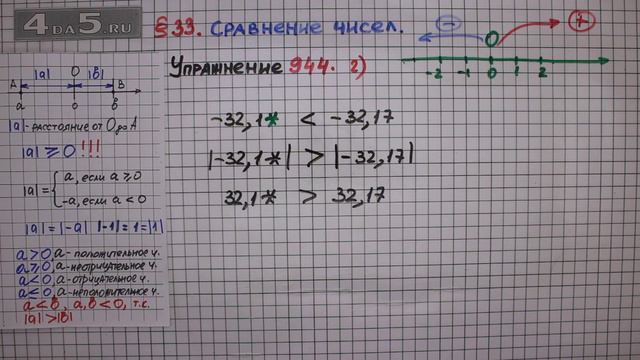 4DA5.RU
§ 33. Сравнение чисел.
Упражнение 944. 2)
− 0 +
-2 -1 0 1 2
|a| 0 |b|
A B
a 0 b
|a| - расстояние от 0 до A
|a| ⩾ 0 !!!
|a| = { a, если a ⩾ 0
-a, если a < 0
|a| = |-a| |-1| = 1 = |1|
a > 0, a - положительное ч.
a ⩾ 0, a - неотрицательное ч.
a < 0, a - отрицательное ч.
a ⩽ 0, a - неположительное ч.
a < b, a, b < 0, т.к.
|a| > |b|
-32,1* < -32,17
|-32,1*| > |-32,17|
32,1* > 32,17